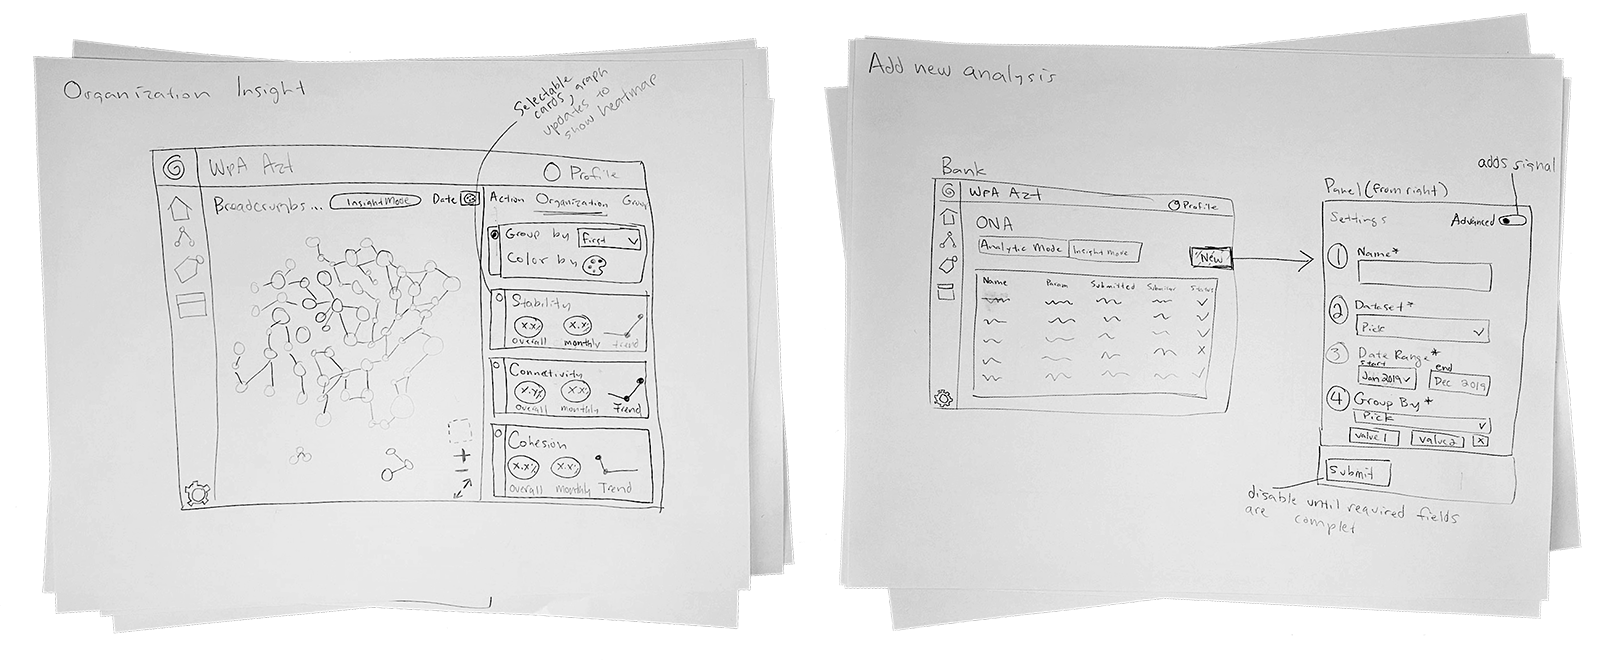 Organization Insight
Selectable
cards, graph
updates to
show heatmap
WpA Azt
Profile
Breadcrumbs...
Insight Mode
Date
Action Organization Group
Group by First
Color by
Stability
x.x% x.x%
overall monthly trend
Connectivity
x.x% x.x%
overall monthly Trend
Cohesion
x.x% x.x%
overall monthly Trend
+
−
Add new analysis
Bank
WpA Azt
Profile
ONA
Analytic Mode Insight more
New
Name Param Submitted Status
adds signal
Panel (from right)
Settings Advanced
1 Name*
2 Dataset*
Pick
3 Date Range*
start end
Jan 2019 Dec 2019
4 Group By*
Pick
value 1 value 2 x
Submit
disable until required fields
are complet